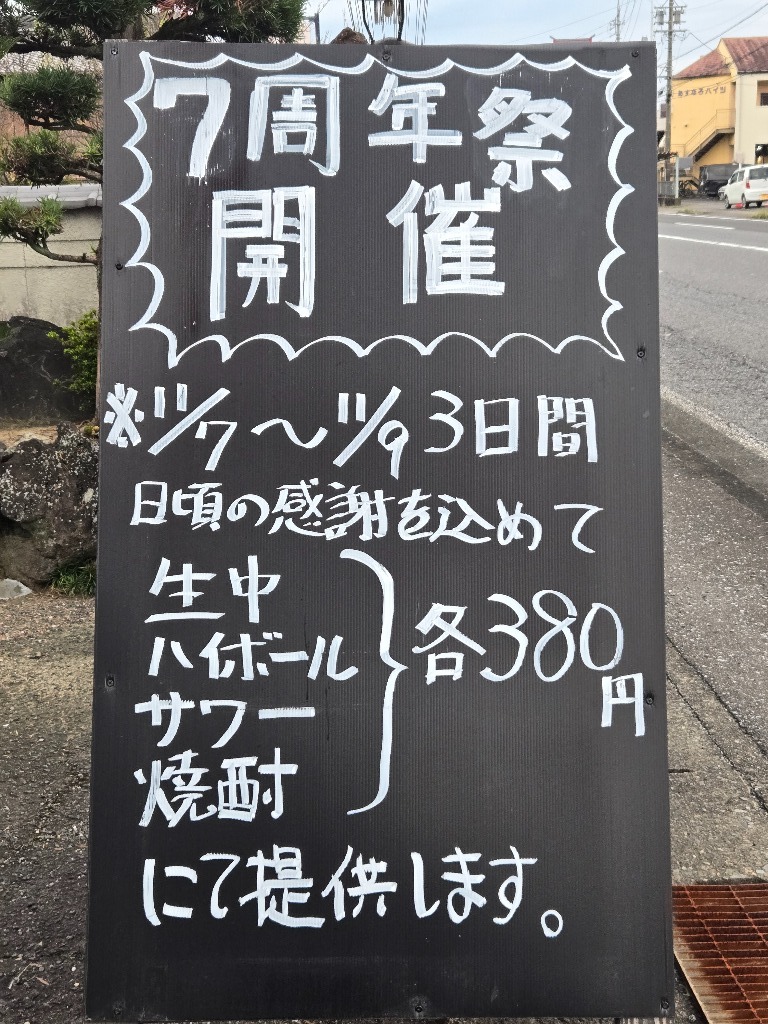 7周年祭
開催
※11/7～11/9 3日間
日頃の感謝を込めて
生中
ハイボール
サワー
焼酎
各380円
にて提供します。